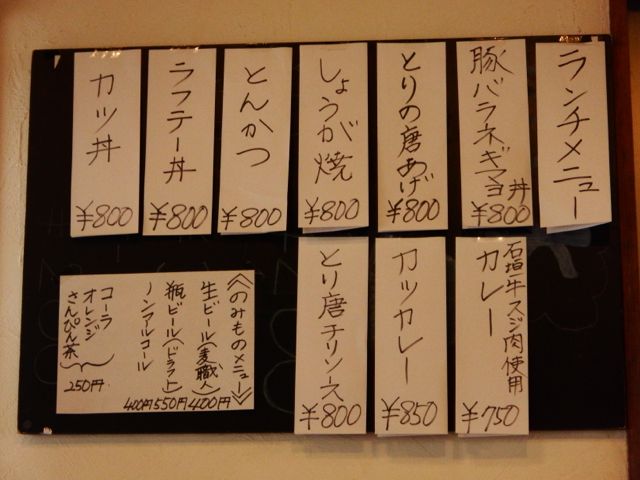 ランチメニュー
豚バラネギマヨ丼
¥800
とりの唐あげ
¥800
しょうが焼
¥800
とんかつ
¥800
ラフテー丼
¥800
カツ丼
¥800
石垣牛スジ肉使用
カレー
¥750
カツカレー
¥850
とり唐チリソース
¥800
≪のみものメニュー≫
生ビール(麦職人)400円
瓶ビール(ドラフト)550円
ノンアルコール 400円
コーラ
オレンジ
さんぴん茶
250円